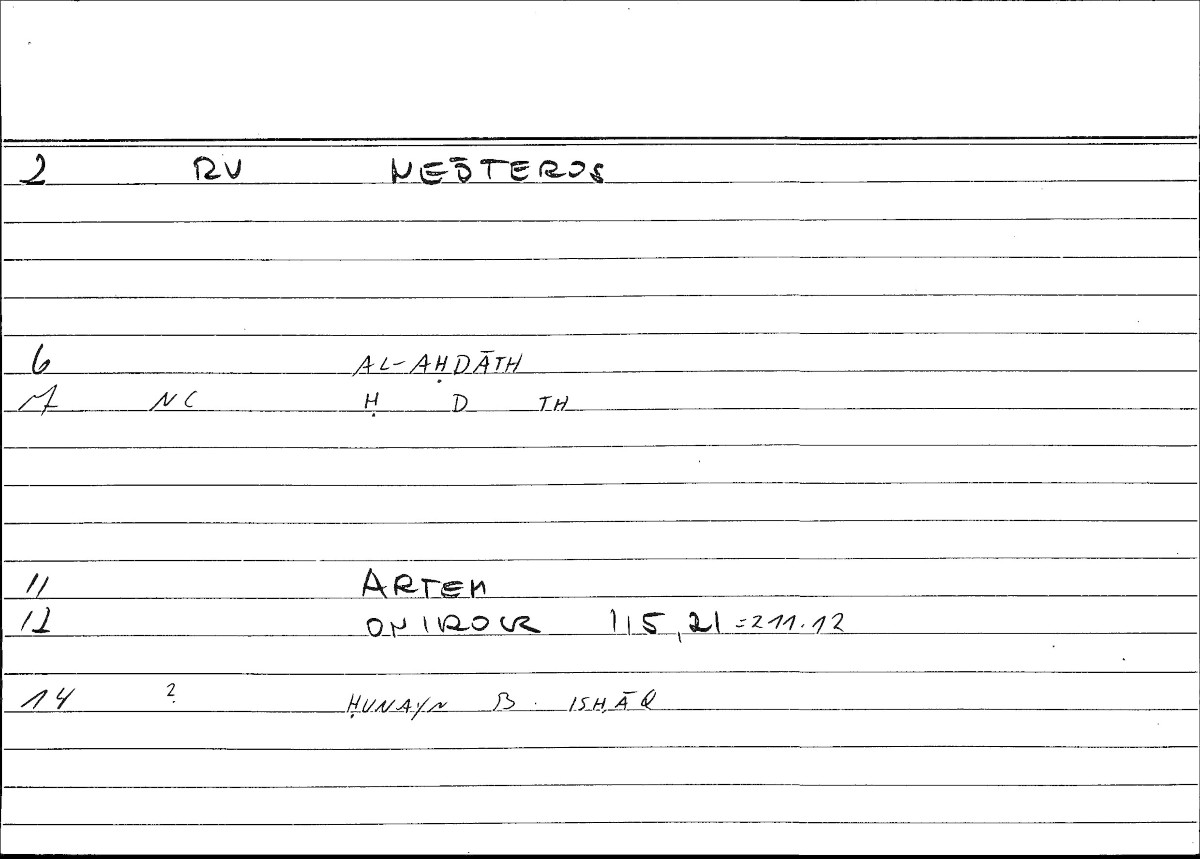 2 RV NEŌTEROS
6 AL-AḤDĀTH
7 NC Ḥ D TH
11 ARTEM
12 ONIROCR 115,21 =211.12
14 ? ḤUNAYN B. ISḤĀQ